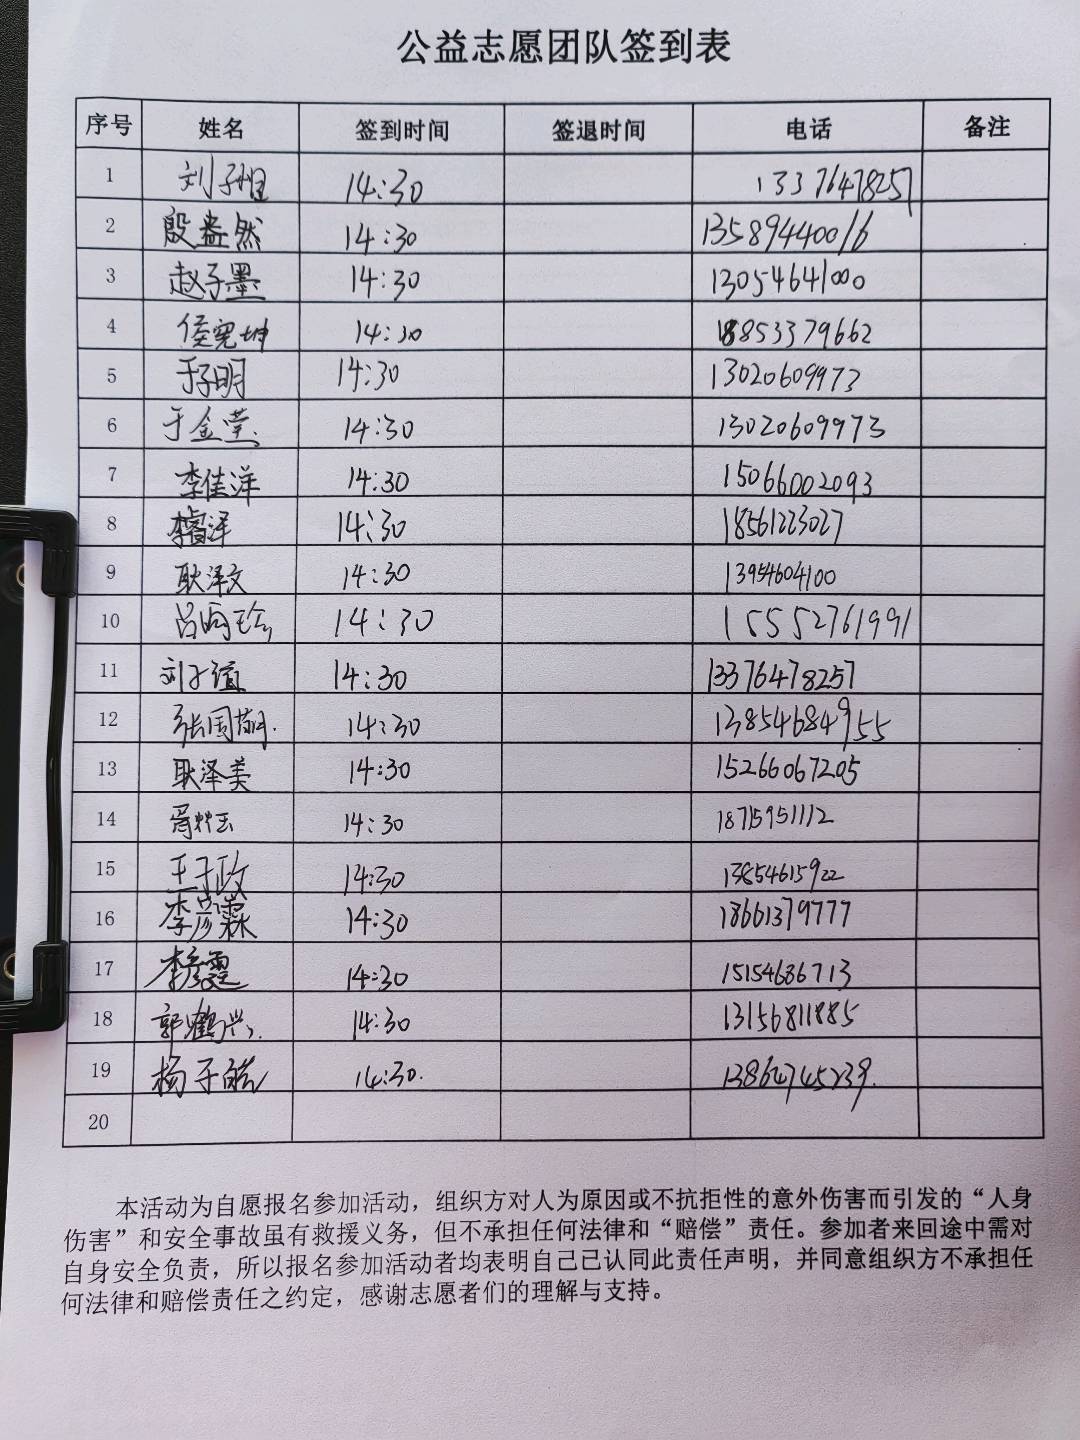 公益志愿团队签到表
序号 姓名 签到时间 签退时间 电话 备注
1 刘子煊 14:30 13376478257
2 殷盎然 14:30 13589440016
3 赵子墨 14:30 13054641000
4 侯宪坤 14:30 18853379662
5 于子明 14:30 13020609973
6 于金莹 14:30 13020609973
7 李佳洋 14:30 15066002093
8 李睿泽 14:30 18561223027
9 耿泽文 14:30 13954604100
10 吕雨珍 14:30 15552761991
11 刘子 14:30 13376478257
12 张周 14:30 13854684955
13 耿泽美 14:30 15266067205
14 14:30 18715951112
15 王子政 14:30 13854615922
16 李彦霖 14:30 18661379777
17 李 14:30 15154686713
18 郭鹤兴 14:30 13156811885
19 杨子皓 14:30. 13864745239.
20
本活动为自愿报名参加活动，组织方对人为原因或不抗拒性的意外伤害而引发的“人身
伤害”和安全事故虽有救援义务，但不承担任何法律和“赔偿”责任。参加者来回途中需对
自身安全负责，所以报名参加活动者均表明自己已认同此责任声明，并同意组织方不承担任
何法律和赔偿责任之约定，感谢志愿者们的理解与支持。